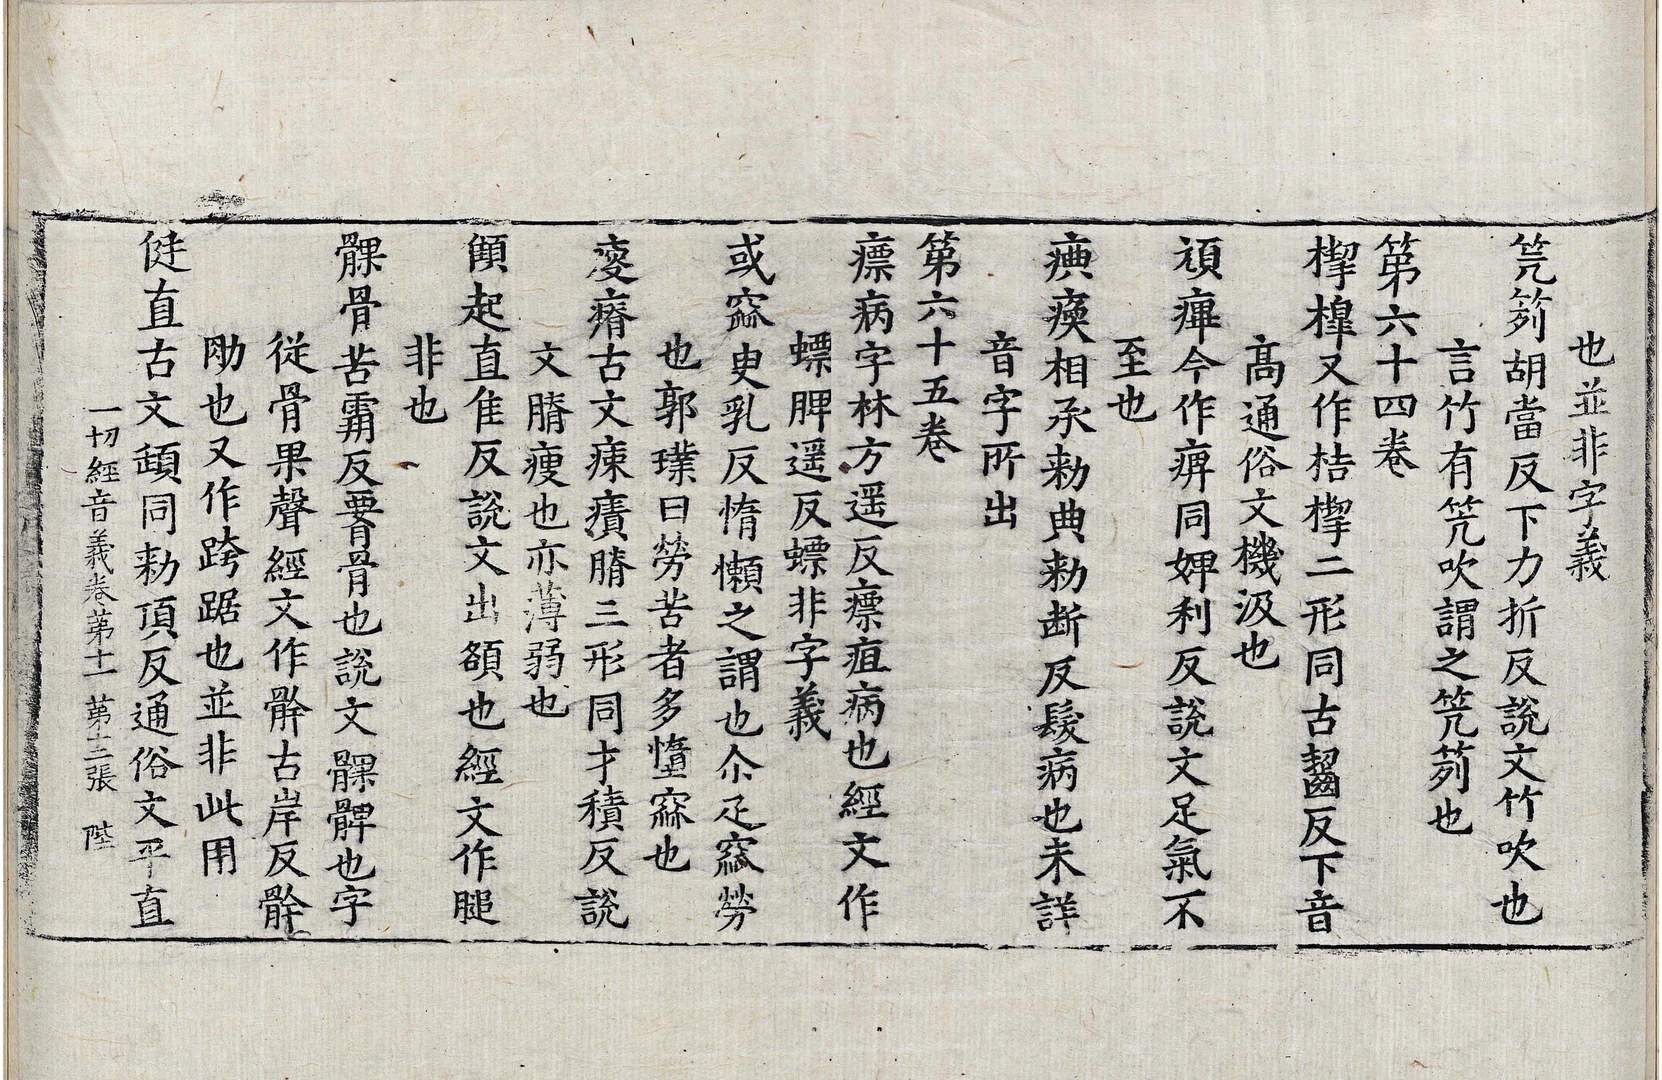 也並非字義
笐筣胡當反下力折反說文竹吹也
言竹有笐吹謂之笐筣也
第六十四卷
㮮槔又作桔㮮二形同古齧反下音
髙通俗文機汲也
頑痺今作痹同婢利反說文足氣不
至也
痶瘓相承勑典勑断反䰐病也未詳
音字所出
第六十五卷
瘭病字林方遥反瘭疽病也經文作
螵脾遥反螵非字義
或窳臾乳反惰懶之謂也尒疋窳勞
也郭璞曰勞苦者多惰窳也
㾐瘠古文㾊㿉膌三形同才積反說
文膌瘦也亦薄弱也
顀起直隹反說文出頟也經文作腿
非也
髁骨苦霸反䯊骨也說文髁髀也字
從骨果聲經文作骭古岸反骭
肋也又作跨踞也並非此用
侹直古文頲同勑頂反通俗文平直
一切經音義卷第十一 第十二張 陛